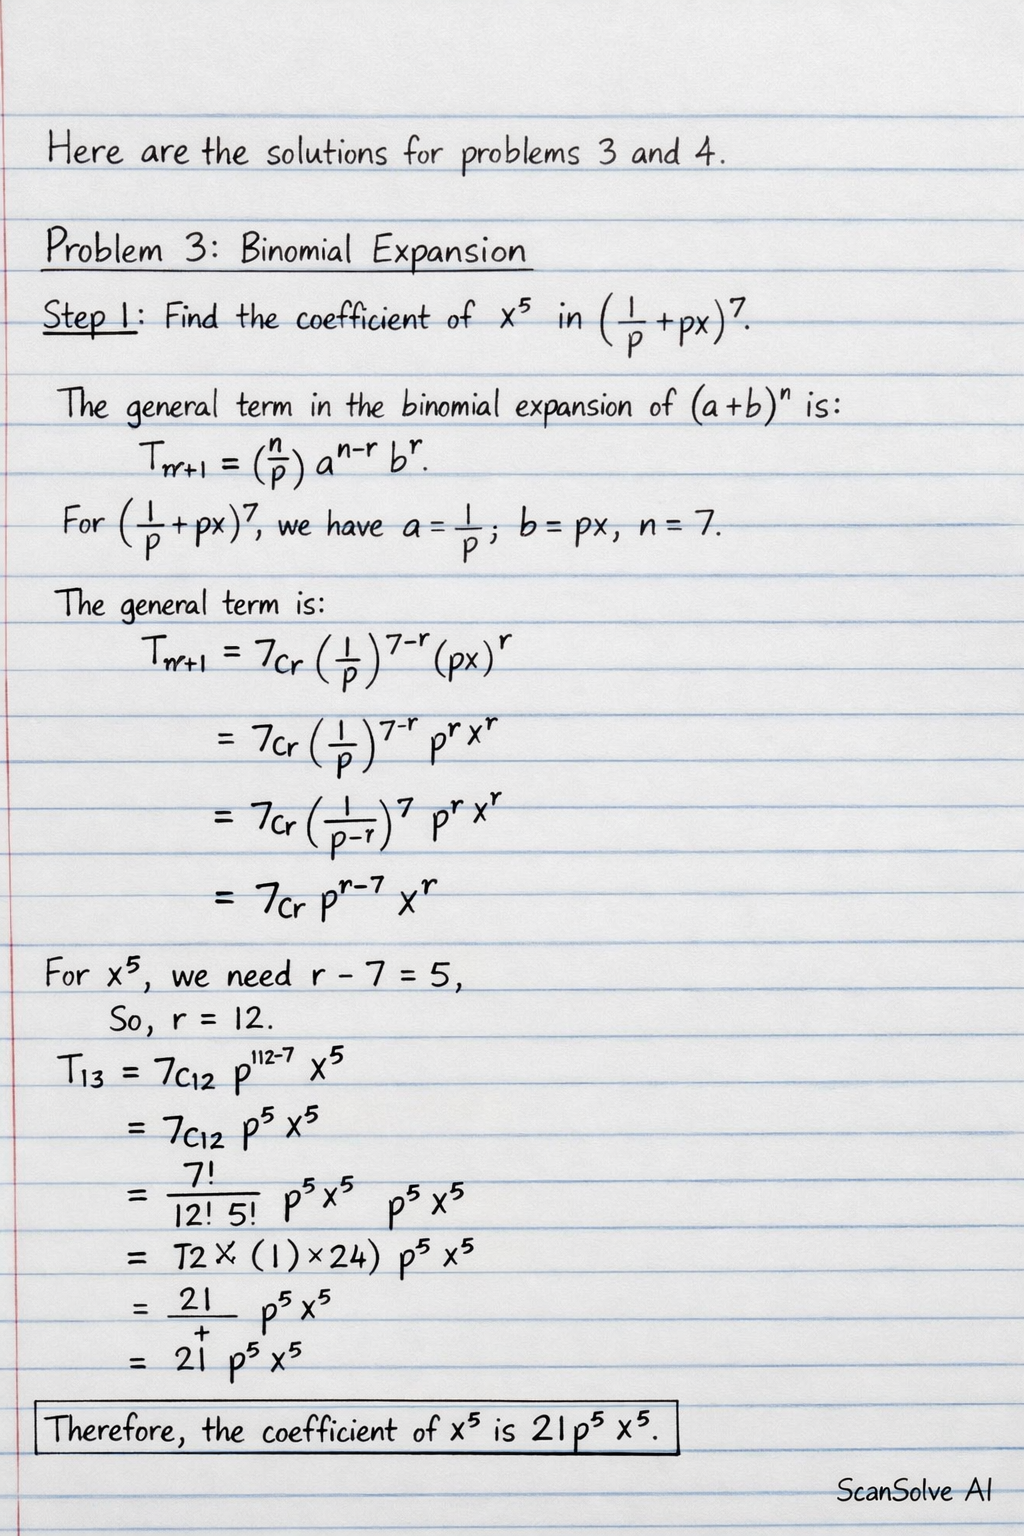 Here are the solutions for problems 3 and 4.
Problem 3: Binomial Expansion
Step 1: Find the coefficient of x⁵ in (1/p + px)⁷.
The general term in the binomial expansion of (a+b)ⁿ is:
Trr+1 = (n/p) aⁿ⁻ʳ bʳ.
For (1/p + px)⁷, we have a = 1/p; b = px, n = 7.
The general term is:
Trr+1 = 7Cr (1/p)⁷⁻ʳ (px)ʳ
= 7Cr (1/p)⁷⁻ʳ pʳ xʳ
= 7Cr (1/p-r)⁷ pʳ xʳ
= 7Cr pʳ⁻⁷ xʳ
For x⁵, we need r - 7 = 5,
So, r = 12.
T13 = 7C12 p¹¹²⁻⁷ x⁵
= 7C12 p⁵ x⁵
= 7!/12! 5! p⁵ x⁵ p⁵ x⁵
= T2 X (1) × 24) p⁵ x⁵
= 21/+ p⁵ x⁵
= 21 p⁵ x⁵
Therefore, the coefficient of x⁵ is 21p⁵ x⁵.
ScanSolve AI